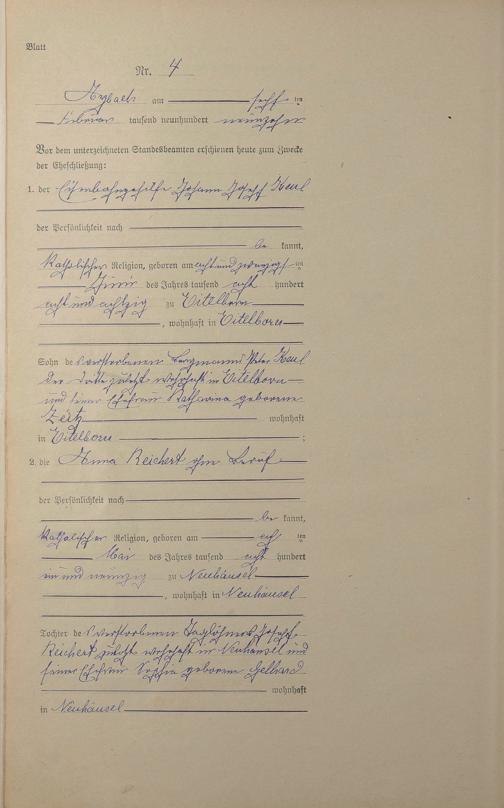 Blatt
Nr. 4
Arzbach am sechs ten
Februar tausend neunhundert neunzehn
Vor dem unterzeichneten Standesbeamten erschienen heute zum Zwecke
der Eheschließung:
1. der Eisenbahngehilfe Johann Josef Keul
der Persönlichkeit nach
be kannt,
katholischer Religion, geboren am achtundzwanzigs ten
des Jahres tausend acht hundert
acht und achtzig zu Eitelborn
, wohnhaft in Eitelborn
Sohn des verstorbenen Bergmanns Peter Keul
zuletzt wohnhaft in Eitelborn
und seiner Ehefrau Katharina geborene
wohnhaft
in Eitelborn ;
2. die Anna Reichert ohne Beruf
der Persönlichkeit nach
be kannt,
katholischer Religion, geboren am ten
Mai des Jahres tausend acht hundert
ein und neunzig zu Neuhäusel
, wohnhaft in Neuhäusel
Tochter des verstorbenen Taglöhners Joseph
Reichert zuletzt wohnhaft in Neuhäusel und
seiner Ehefrau Sophia geborene Gelhard
wohnhaft
in Neuhäusel